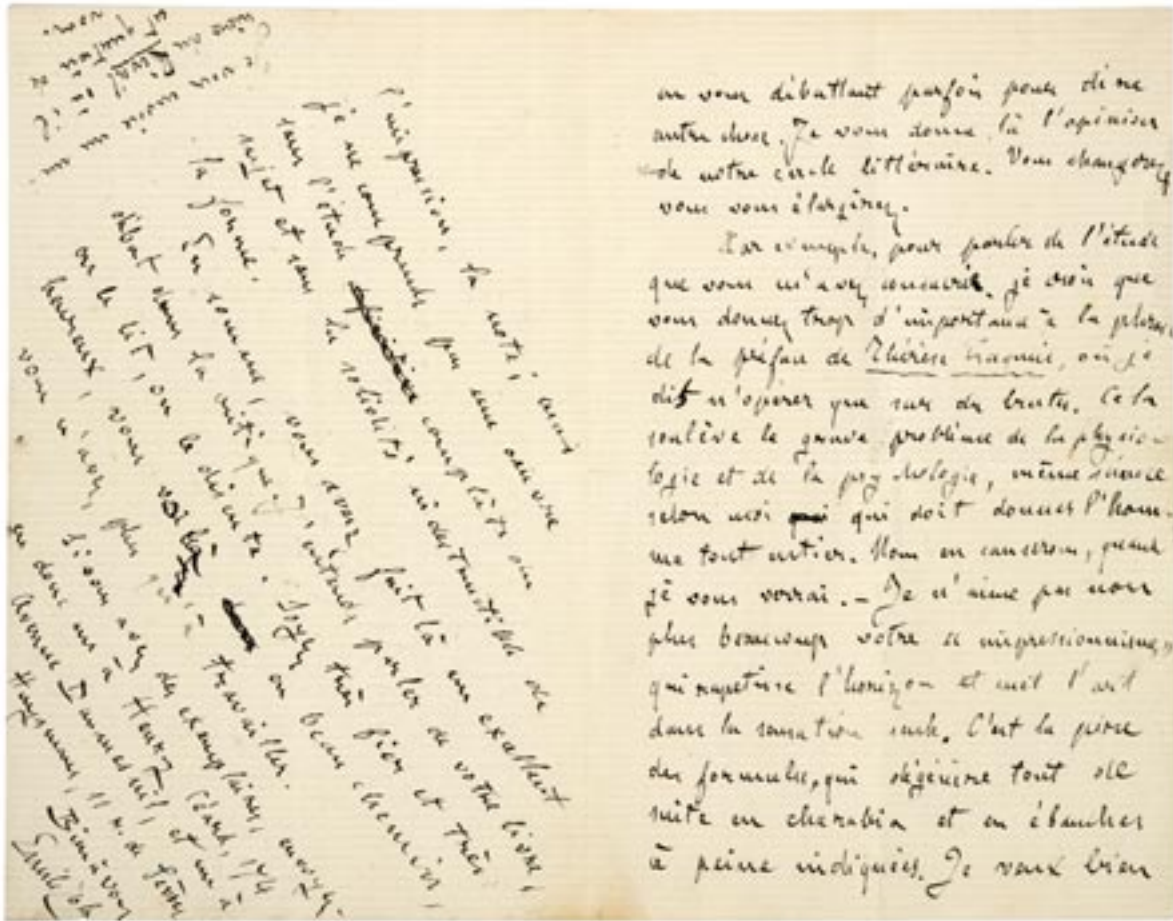 en vous débattant parfois pour dire
autre chose. Je vous donne là l'opinion
de notre cercle littéraire. Vous changerez,
vous vous élargirez.
Par exemple, pour parler de l'étude
que vous m'avez consacrée, je crois que
vous donnez trop d'importance à la phrase
de la préface de Thérèse Raquin, où je
dis n'opérer que sur des brutes. Cela
soulève le grave problème de la physio-
logie et de la psychologie, même science
selon moi qui doit donner l'hom-
me tout entier. Nous en causerons, quand
je vous verrai. — Je n'aime pas non
plus beaucoup votre « impressionnisme »
qui rapetisse l'horizon et met l'art
dans la sensation seule. C'est la pire
des formules, qui dégénère tout de
suite en charabia et en ébauches
à peine indiquées. Je veux bien
l'impression, la note; mais
je ne comprends pas une œuvre
sans l'étude complète du
sujet et sans la solidité indestructible de
la forme.
En somme, vous avez fait là un excellent
début dans la critique. J'entends parler de votre livre,
on le lit, on le discute. Soyez très fier et très
heureux, vous voilà en beau chemin,
vous n'avez plus qu'à travailler.
Si vous avez des exemplaires, envoyez-
en donc un à Henry Céard, 174
Avenue Daumesnil, et un à
Huysmans, 11 r. de Sèvres
Bien à vous
Emile Zola